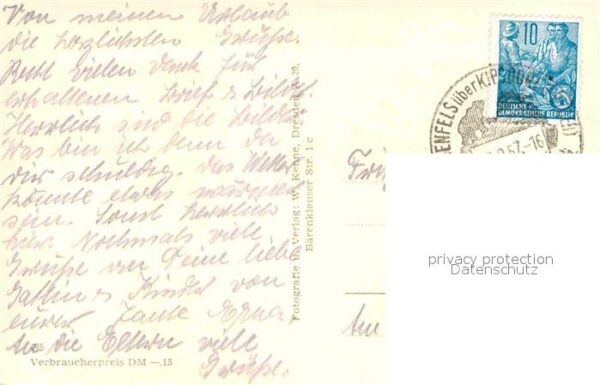 Von meinen Urlaub
die herzlichsten Grüße.
Recht vielen Dank für
erhaltenen Brief & Bilder.
Herrlich sind die Bilder
Was bin ich denn da
dir schuldig. Das Wetter
könnte etwas wärmer
sein. Sonst herrlich
hier. Nochmals viele
Grüße an Deine liebe
Gattin & Kinder von
eurer Tante Erna
An die Eltern viele
Grüße.
Verbraucherpreis DM —,15
Fotografie u. Verlag: W. Kenne, Dresden A 20,
Bärenklauser Str. 1 c
10
DEUTSCHE
DEMOKRATISCHE REPUBLIK
ENFELS über KIPSDORF
.57.-16
Am
privacy protection
Datenschutz